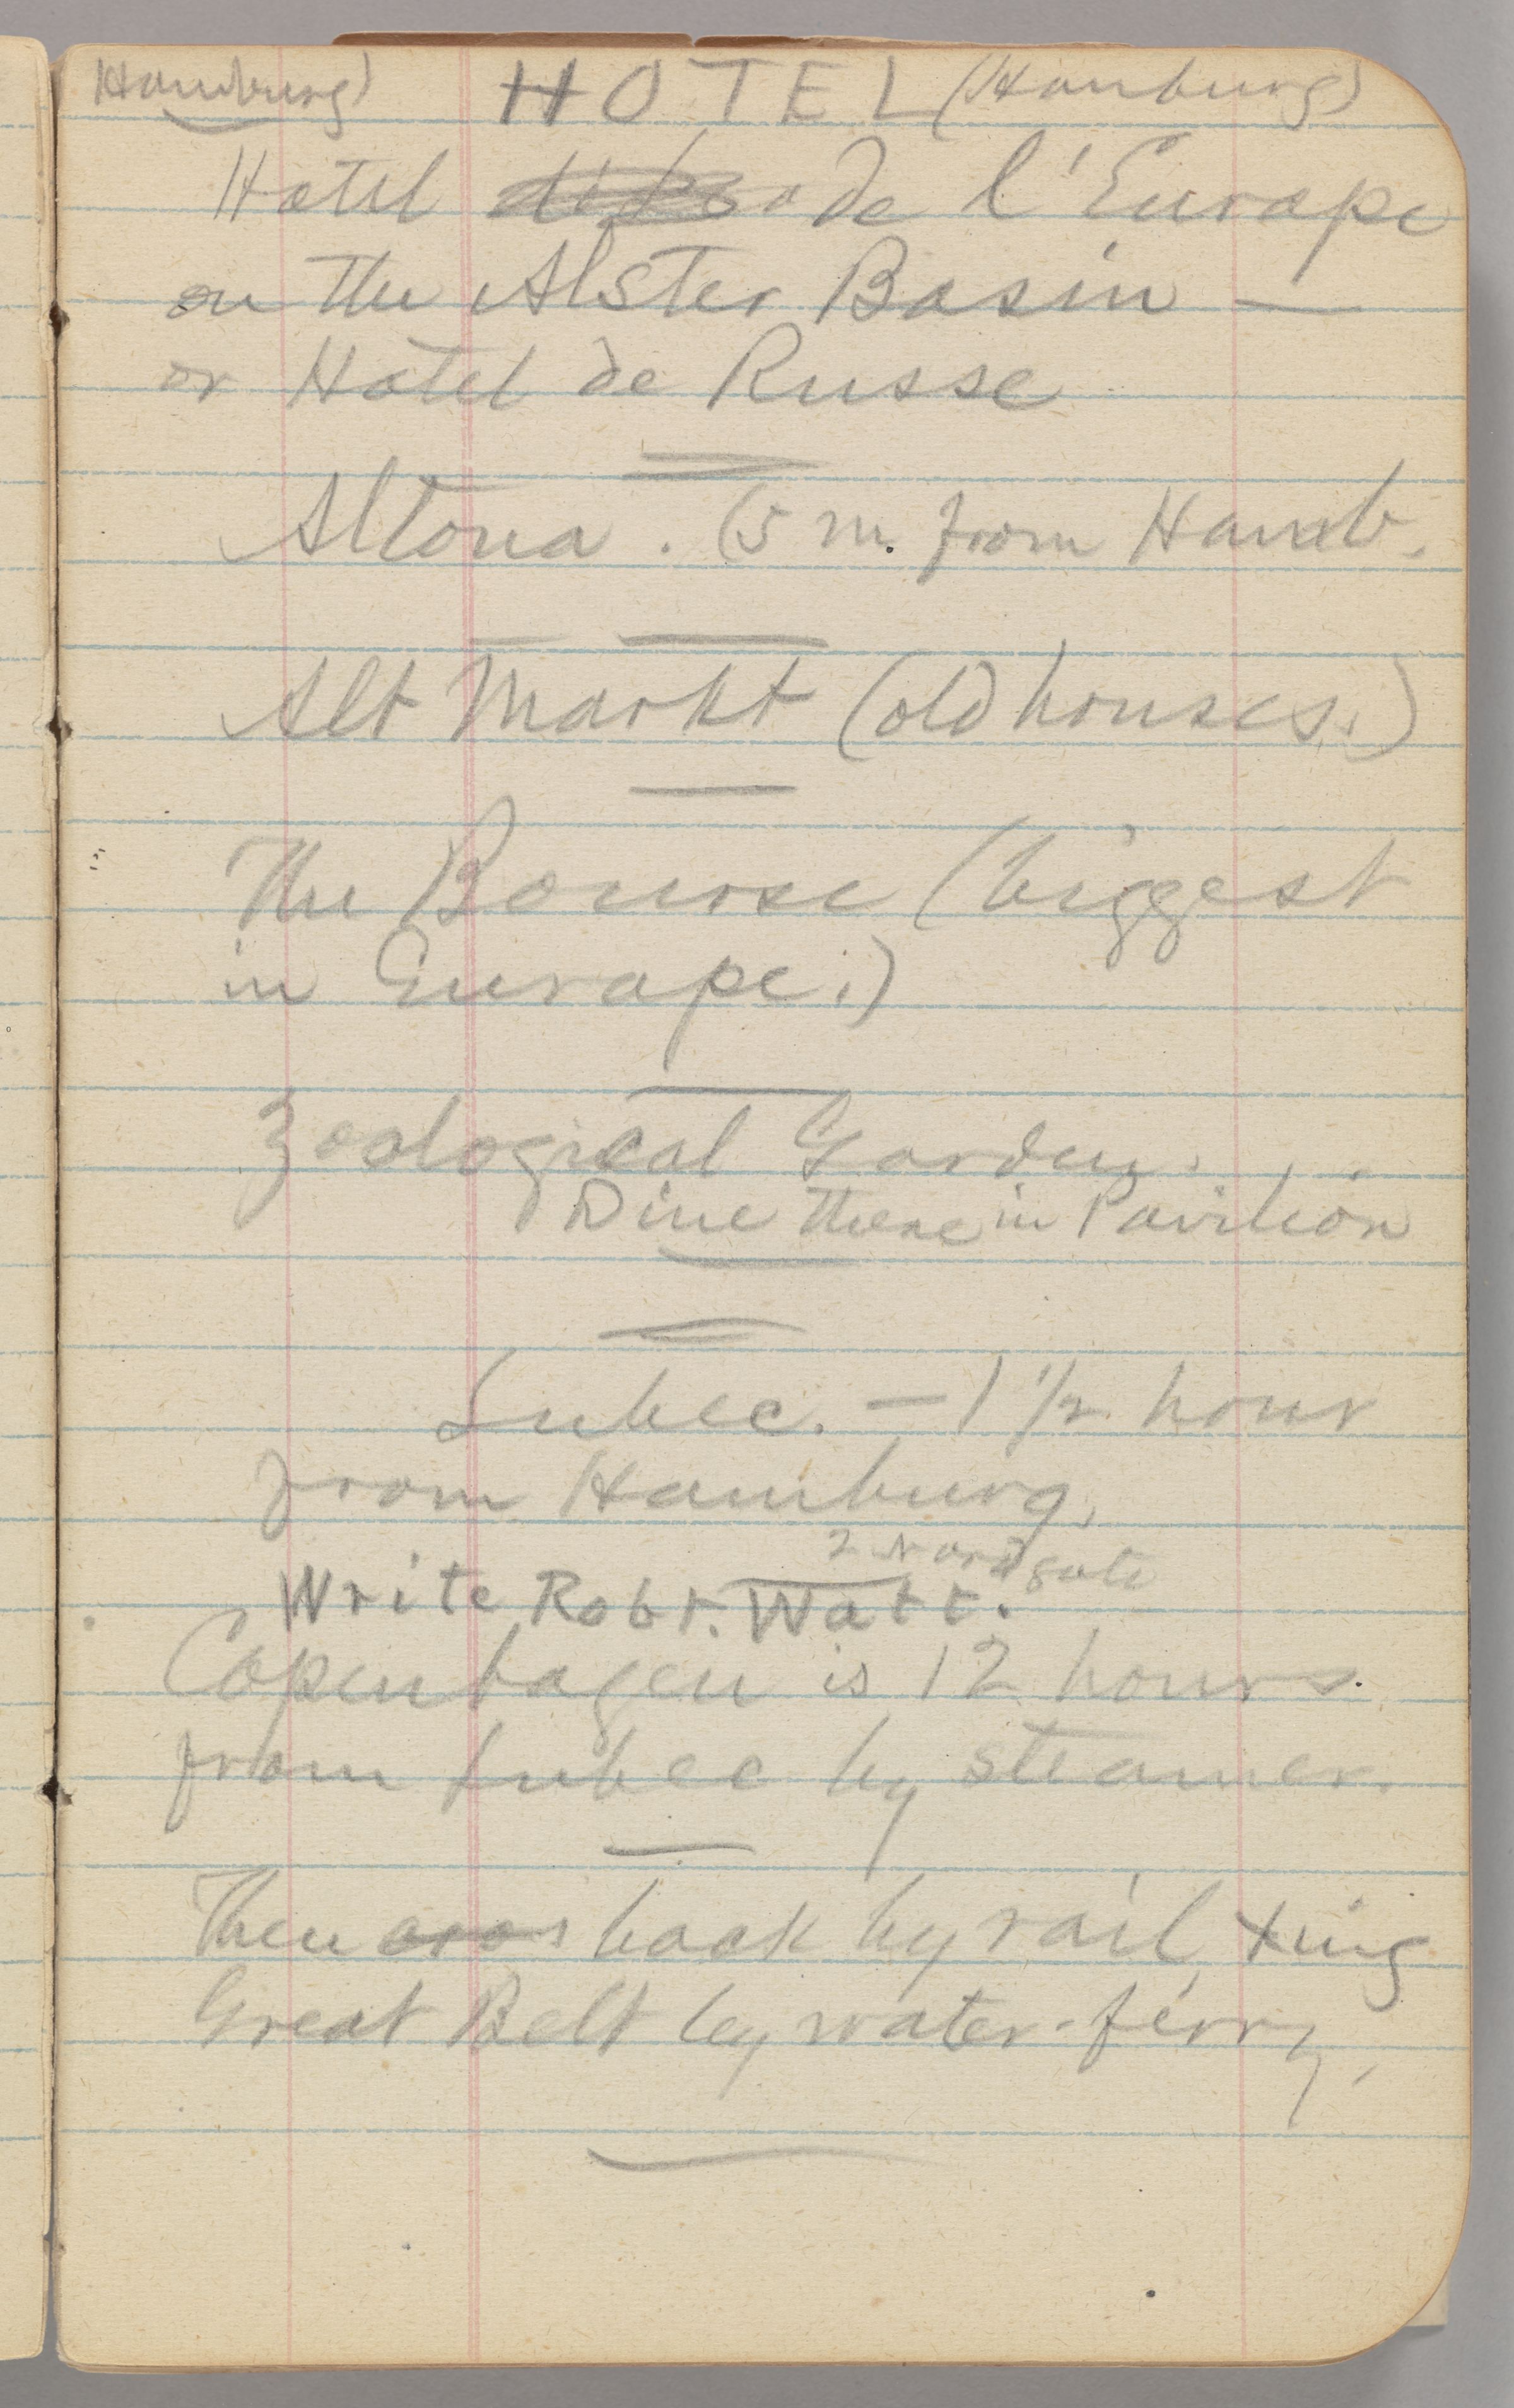 Hamburg) HOTEL (Hamburg)
Hotel de l'Europe
on the Alster Basin —
or Hotel de Russe
Altona. (5 m. from Hamb.
Alt Markt (old houses.)
The Bourse (biggest
in Europe.)
Zoological Garden.
Dine there in Pavilion
Lubec. — 1 1/2 hour
from Hamburg.
2 Nordgate
Write Robt. Watt.
Copenhagen is 12 hours
from Lubec by steamer.
Then back by rail, Xing
Great Belt by water-ferry,